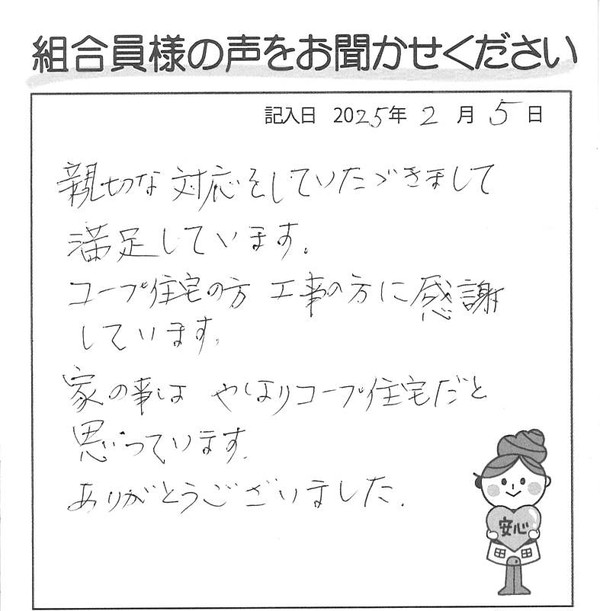 組合員様の声をお聞かせください
記入日 2025年 2 月 5 日
親切な対応をしていただきまして
満足しています。
コープ住宅の方 工事の方に感謝
しています。
家の事は やはりコープ住宅だと
思っています。
ありがとうございました.
安心